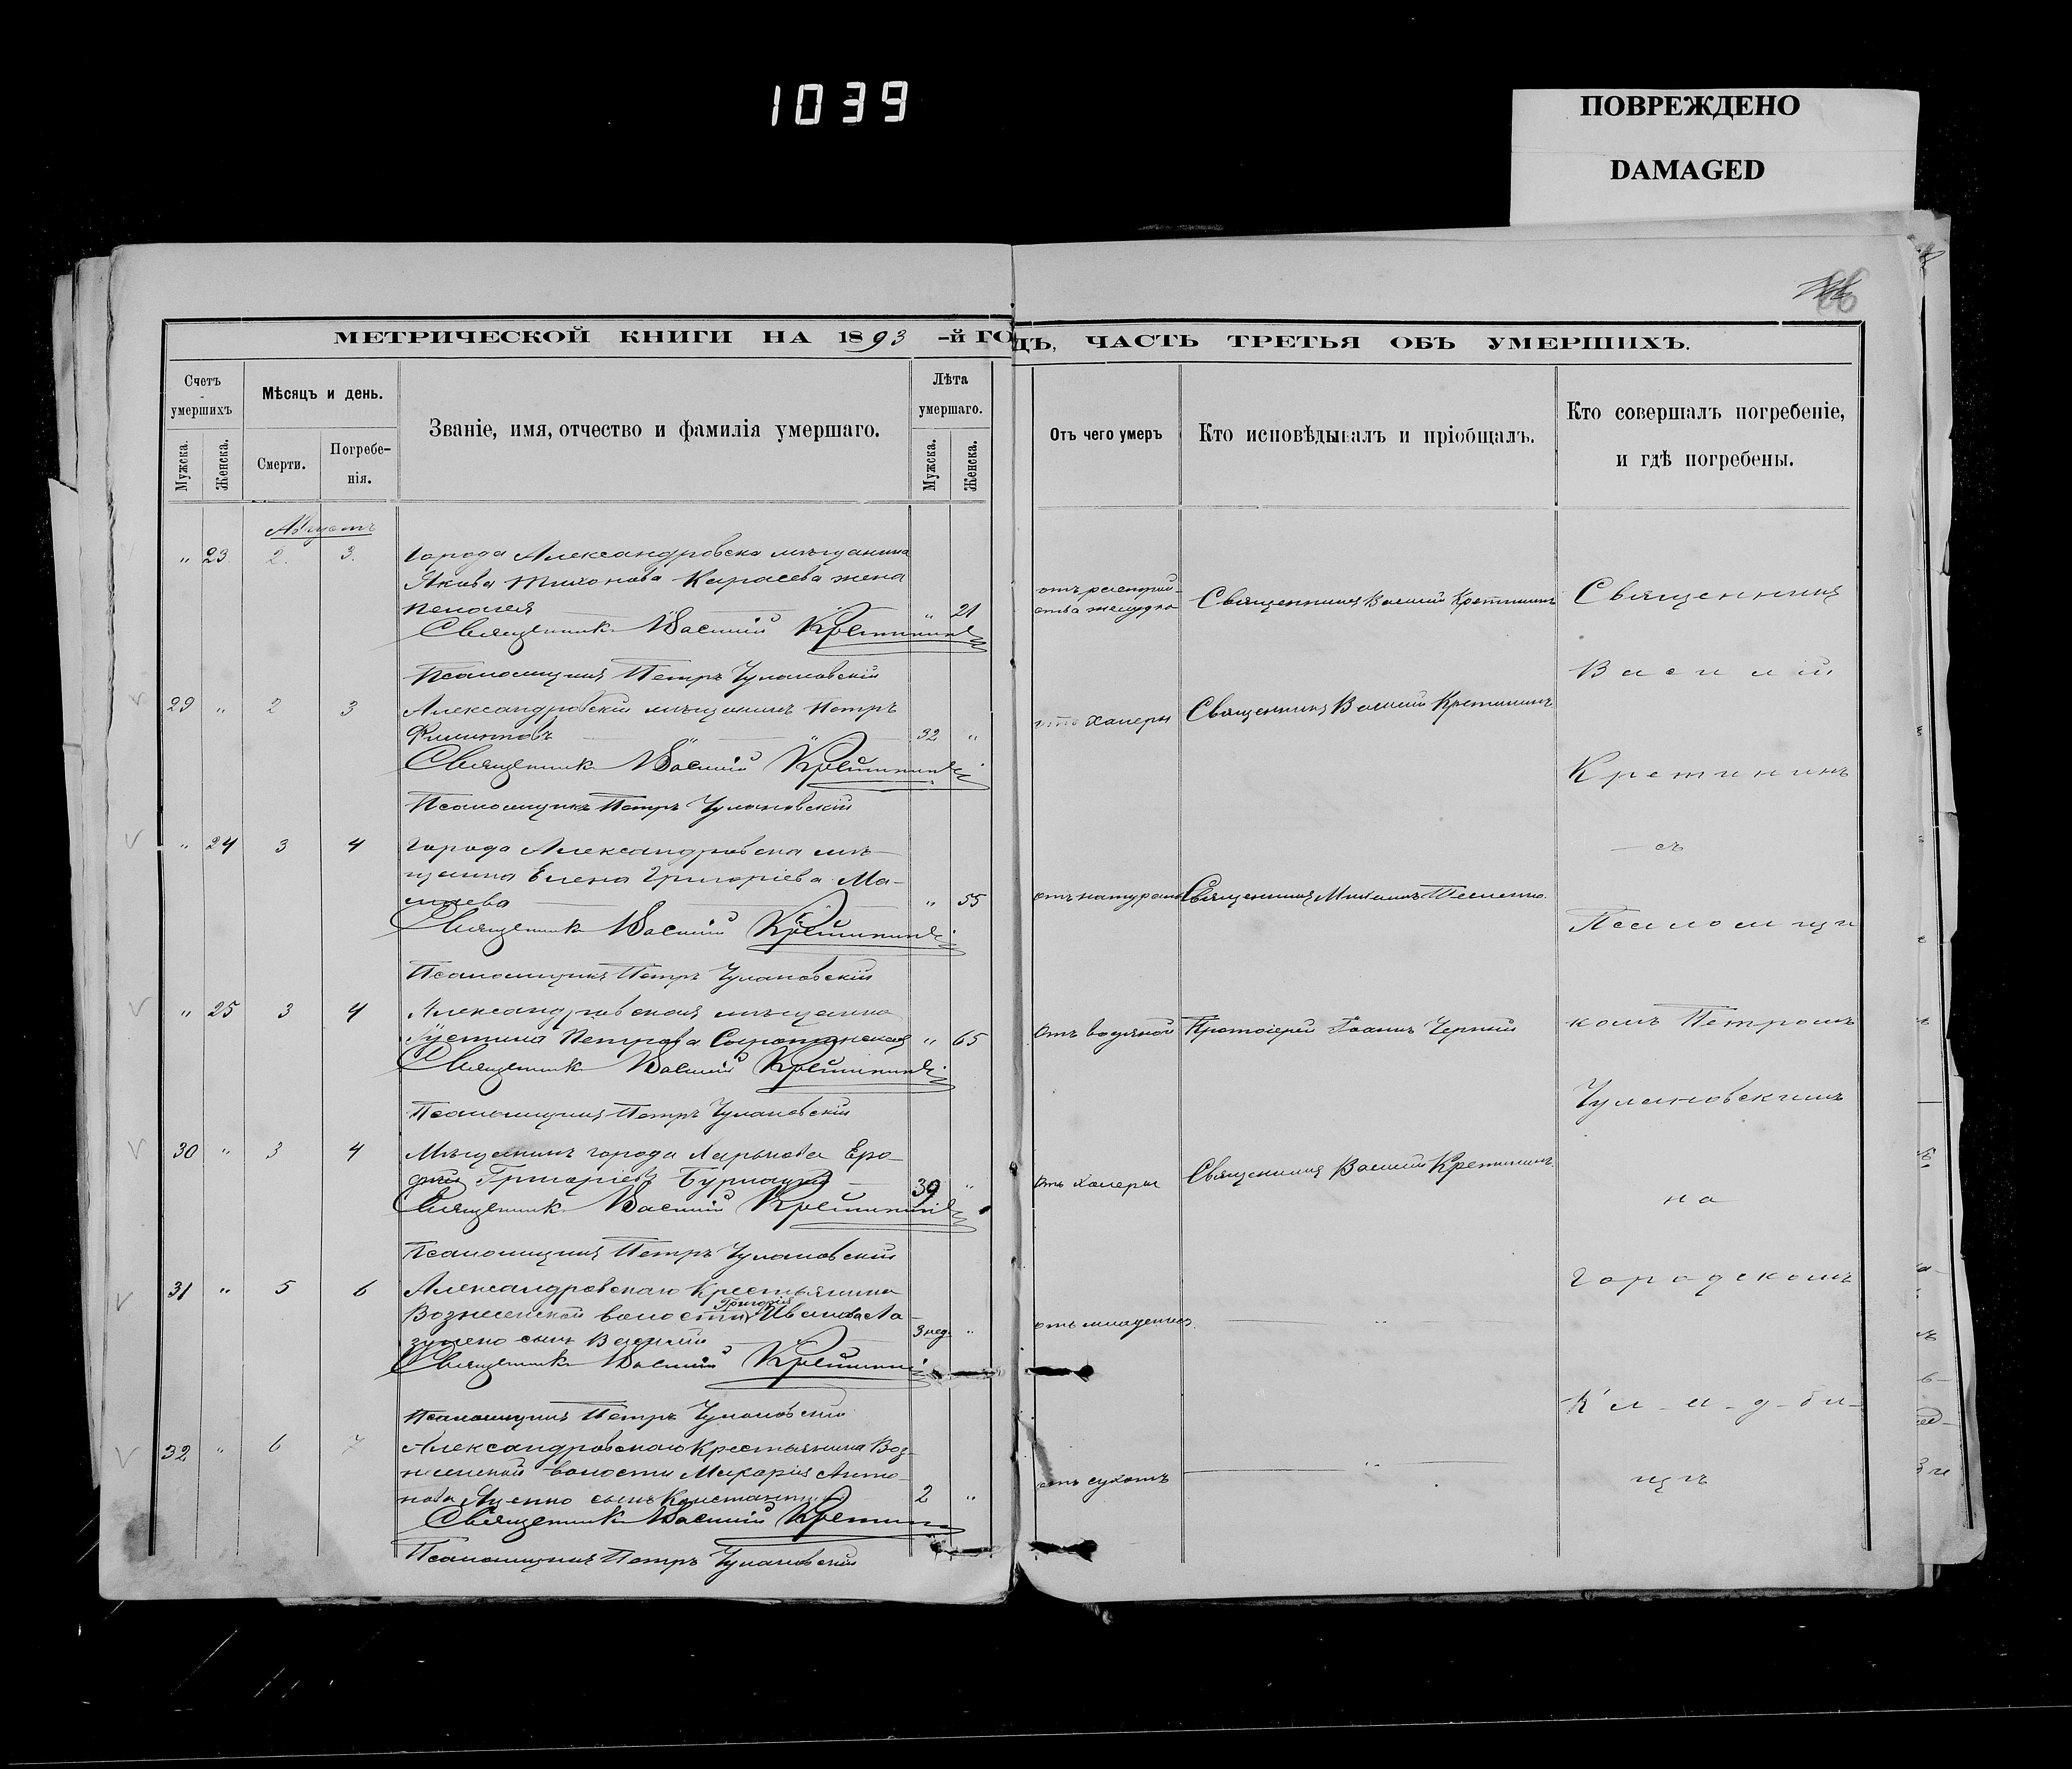 1039
ПОВРЕЖДЕНО
DAMAGED
66
МЕТРИЧЕСКОЙ КНИГИ НА 1893 -й ГОДЪ, ЧАСТЬ ТРЕТЬЯ ОБЪ УМЕРШИХЪ.
Счетъ умершихъ
Мужска.
Женска.
Мѣсяцъ и день.
Смерти.
Погребенія.
Званіе, имя, отчество и фамилія умершаго.
Лѣта умершаго.
Мужска.
Женска.
Отъ чего умеръ
Кто исповѣдывалъ и пріобщалъ.
Кто совершалъ погребеніе,
и гдѣ погребены.
Августъ
" 23 2. 3. Города Александровска мѣщанина
Якова Тихонова Карасева жена
" 21
желудка Священникъ Василій Кретининъ
Священникъ Василій Кретининъ
Псаломщикъ Петръ Чулановскій
29 " 2 3 Александровскій мѣщанинъ Петръ
32 "
холеры Священникъ Василій Кретининъ
Священникъ Василій Кретининъ
Псаломщикъ Петръ Чулановскій
" 24 3 4 Города Александровска мѣ-
щанка Елена Григоріева Ма-
" 55
Священникъ Михаилъ
Священникъ Василій Кретининъ
Псаломщикъ Петръ Чулановскій
" 25 3 4 Александровская мѣщанка
Іустина Петрова " 65
Отъ водяной Протоіерей Іоаннъ Черный
Священникъ Василій Кретининъ
Псаломщикъ Петръ Чулановскій
30 " 3 4 Мѣщанинъ города Харькова Еро-
Григоріевъ 39 "
Отъ холеры Священникъ Василій Кретининъ
Священникъ Василій Кретининъ
Псаломщикъ Петръ Чулановскій
31 " 5 6 Александровскаго Крестьянина
Григорія
Вознесенской волости Иванова Ла-
сынъ Василій 3 нед. "
отъ "
Священникъ Василій Кретининъ
Псаломщикъ Петръ Чулановскій
32 " 6 7 Александровскаго Крестьянина Воз-
несенской волости Макарія Анто-
нова Яценко сынъ Константинъ 2 "
отъ сухотъ "
Священникъ Василій Кретининъ
Псаломщикъ Петръ Чулановскій
Священникъ
Василій
Кретининъ
съ
Псаломщи
комъ Петромъ
Чулановскимъ
на
Городскомъ
Кладби-
щѣ